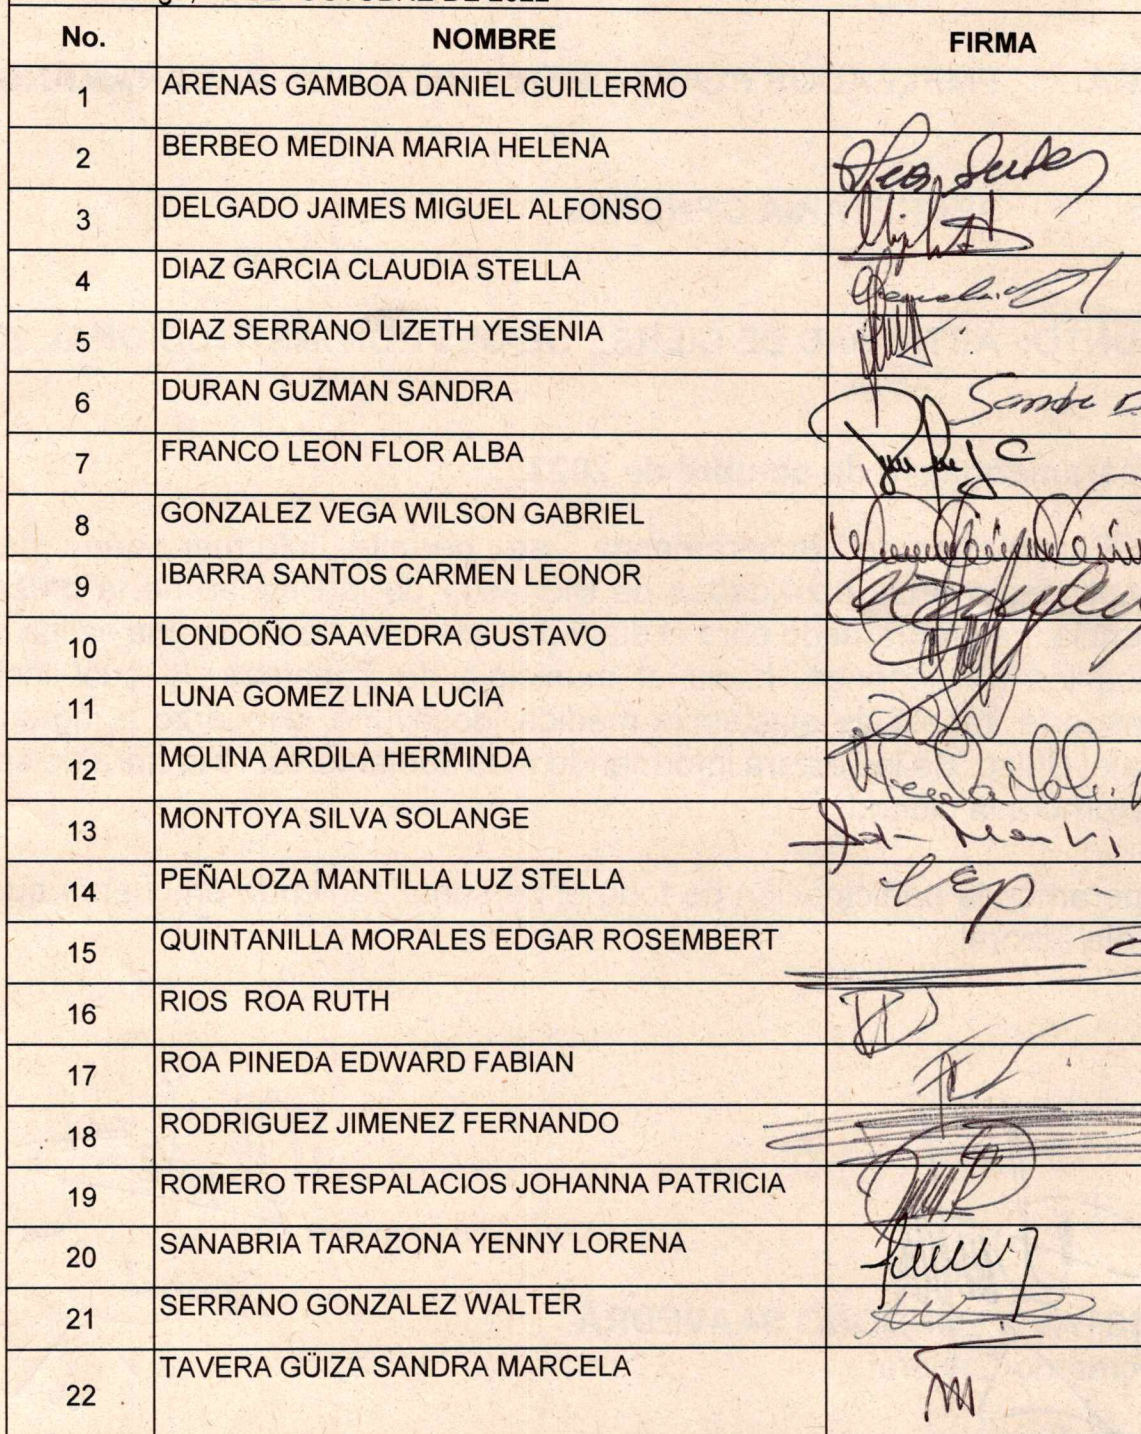 OCTUBRE DE 2022
No. NOMBRE FIRMA
1 ARENAS GAMBOA DANIEL GUILLERMO
2 BERBEO MEDINA MARIA HELENA
3 DELGADO JAIMES MIGUEL ALFONSO
4 DIAZ GARCIA CLAUDIA STELLA
5 DIAZ SERRANO LIZETH YESENIA
6 DURAN GUZMAN SANDRA
7 FRANCO LEON FLOR ALBA
8 GONZALEZ VEGA WILSON GABRIEL
9 IBARRA SANTOS CARMEN LEONOR
10 LONDOÑO SAAVEDRA GUSTAVO
11 LUNA GOMEZ LINA LUCIA
12 MOLINA ARDILA HERMINDA
13 MONTOYA SILVA SOLANGE
14 PEÑALOZA MANTILLA LUZ STELLA
15 QUINTANILLA MORALES EDGAR ROSEMBERT
16 RIOS ROA RUTH
17 ROA PINEDA EDWARD FABIAN
18 RODRIGUEZ JIMENEZ FERNANDO
19 ROMERO TRESPALACIOS JOHANNA PATRICIA
20 SANABRIA TARAZONA YENNY LORENA
21 SERRANO GONZALEZ WALTER
22 TAVERA GÜIZA SANDRA MARCELA